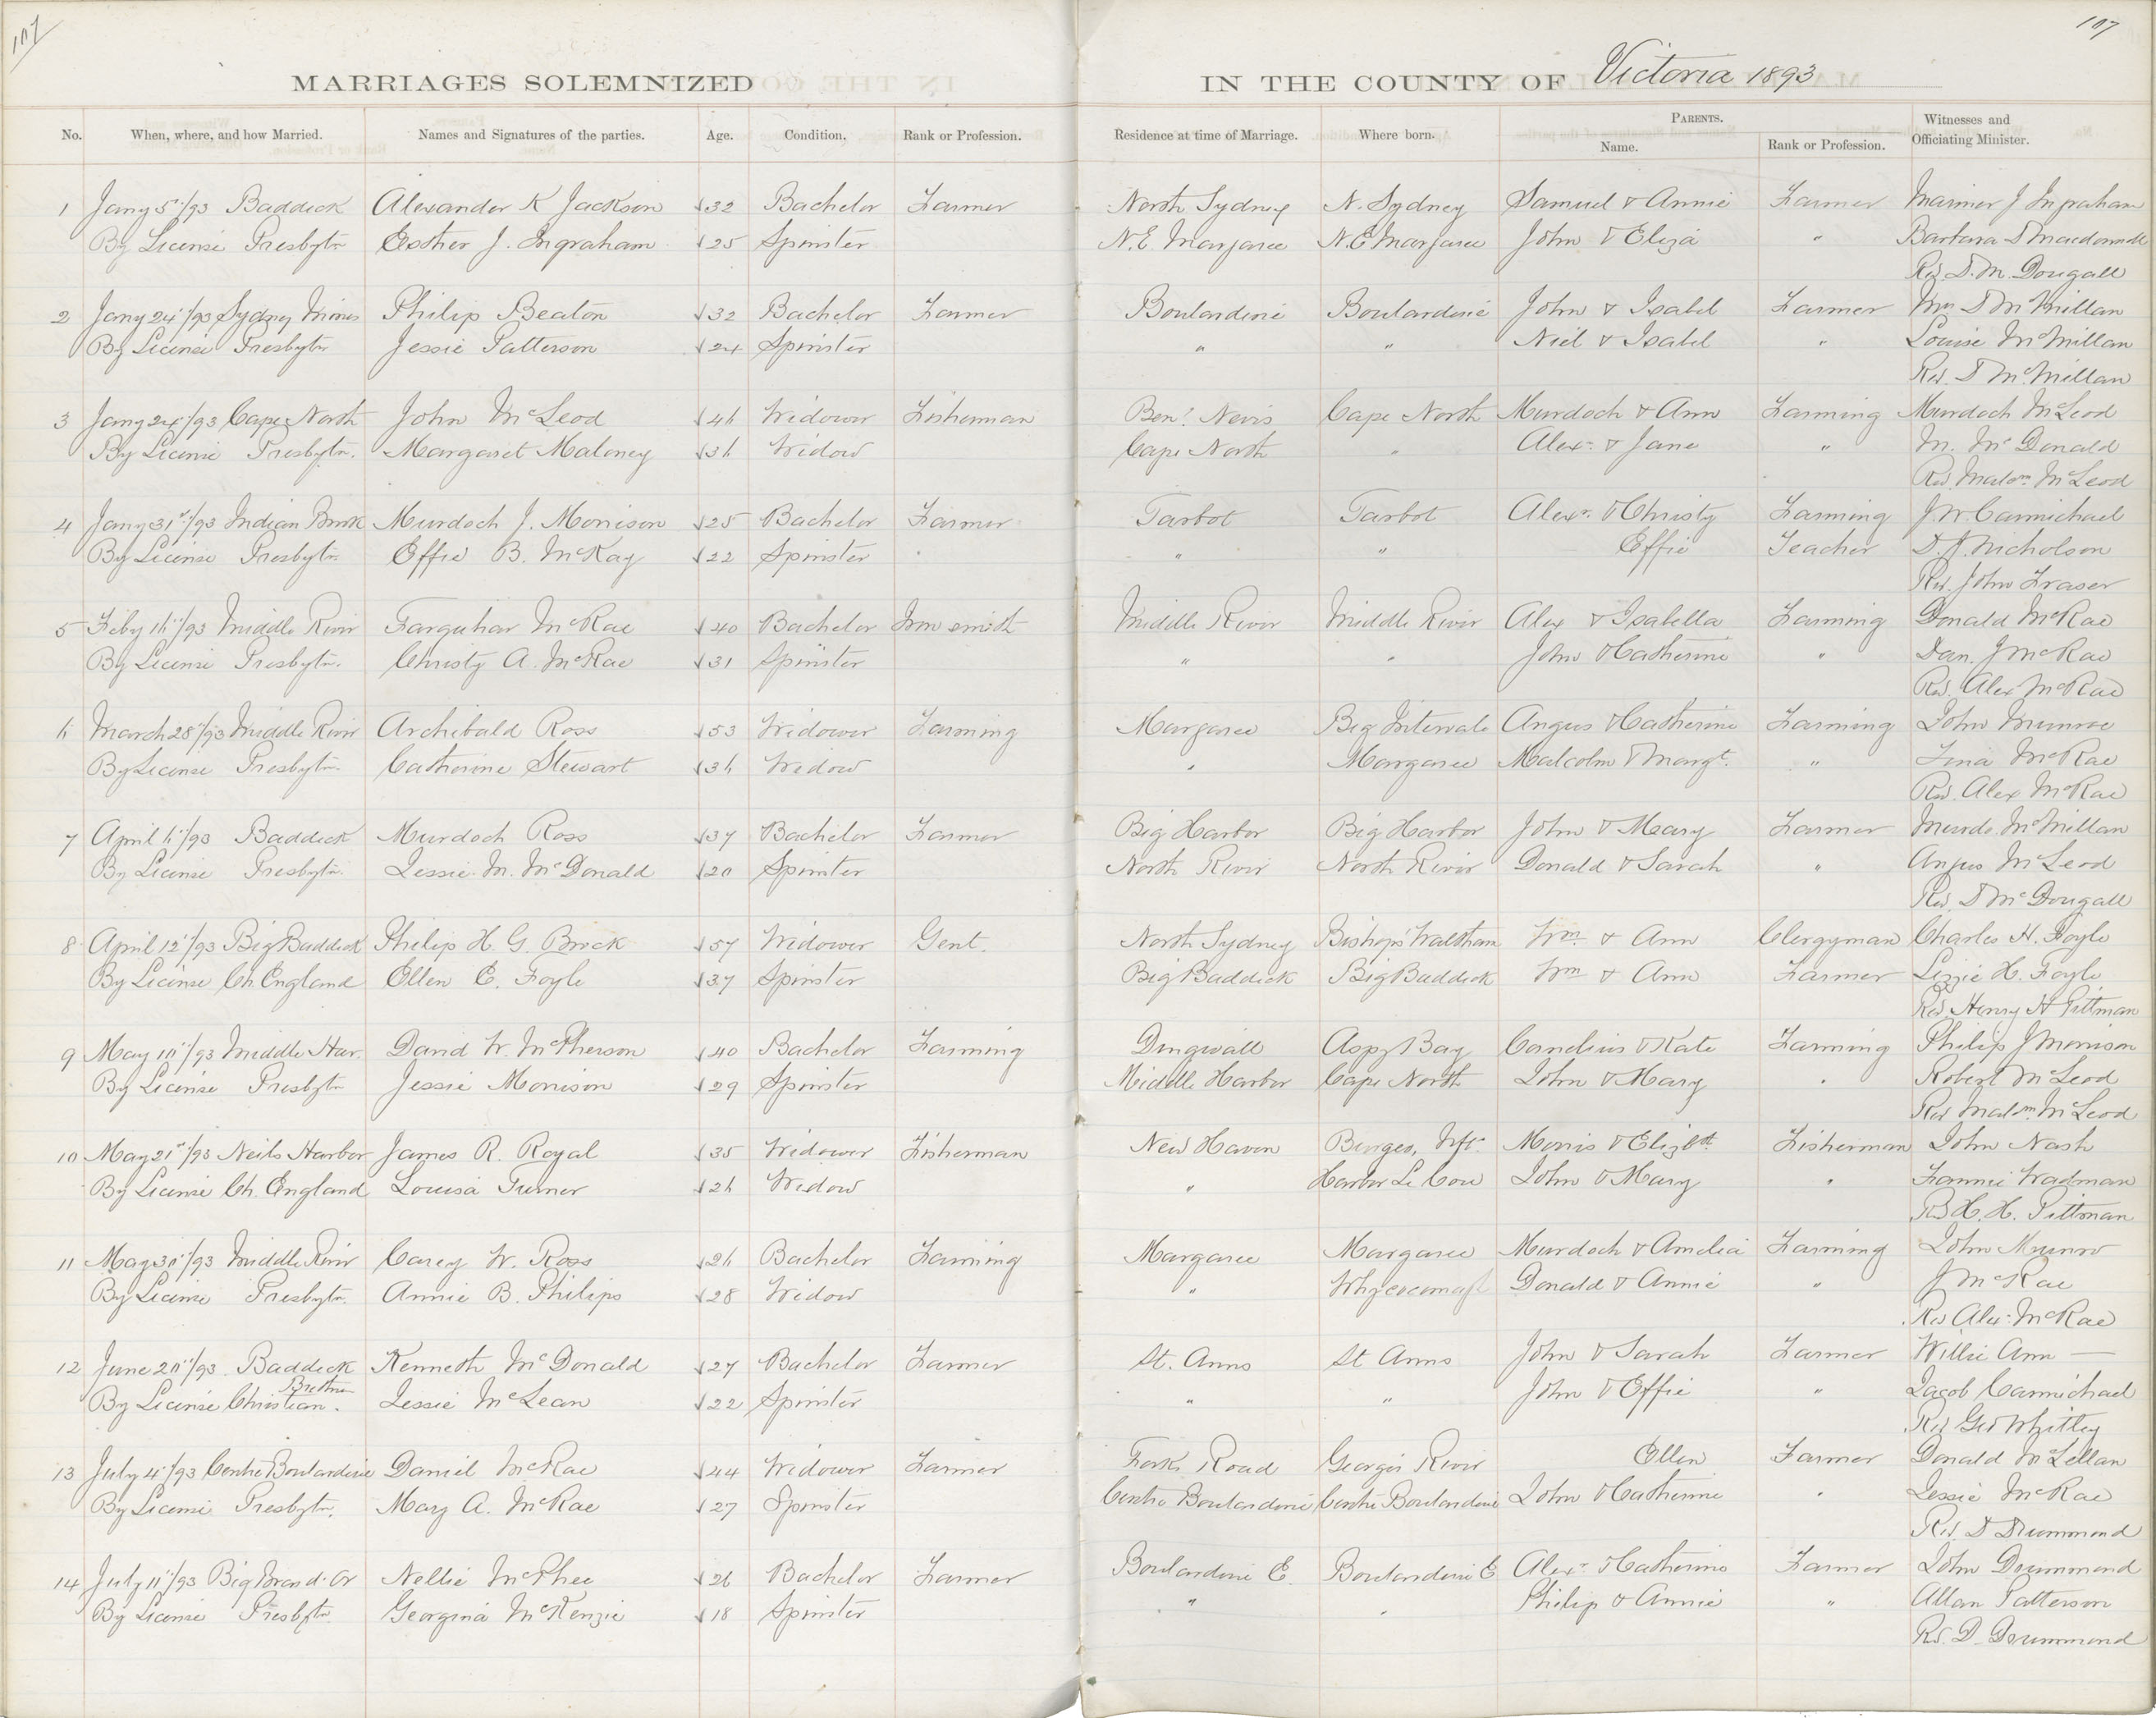 107
107
MARRIAGES SOLEMNIZED IN THE COUNTY OF Victoria 1893
No. When, where, and how Married. Names and Signatures of the parties. Age. Condition. Rank or Profession. Residence at time of Marriage. Where born. PARENTS. Name. Rank or Profession. Witnesses and Officiating Minister.
1 Jany 5"/93 Baddeck Alexander K Jackson 32 Bachelor Farmer North Sydney N. Sydney Samuel & Annie Farmer Mariner J Ingraham
By License Presbytn Esther J. Ingraham 25 Spinster N.E. Margaree N.E Margaree John & Eliza " Barbara
Rev D. M. Dougall
2 Jany 24"/93 Sydney Mines Philip Beaton 32 Bachelor Farmer Boulardrie Boulardrie John & Isabel Farmer Mrs D McMillan
By License Presbytn Jessie Patterson 24 Spinster " " Niel & Isabel " Louise McMillan
Rev. D McMillan
3 Jany 24"/93 Cape North John McLeod 46 Widower Fisherman Ben! Nevis Cape North Murdoch & Ann Farming Murdoch McLeod
By License Presbytn. Margaret Maloney 36 Widow Cape North " Alexr & Jane " M. McDonald
Rev. Malcm McLeod
4 Jany 31st/93 Indian Brook Murdoch J. Morrison 25 Bachelor Farmer Tarbot Tarbot Alexr. & Christy Farming J. W. Carmichael
By License Presbytn Effie B. McKay 22 Spinster " " Effie Teacher D. A. Nicholson
Rev. John Fraser
5 Feby 16"/93 Middle River Farquhar McRae 40 Bachelor Iron smith Middle River Middle River Alex & Isabella Farming Donald McRae
By License Presbytn. Christy A. McRae 31 Spinster " " John & Catherine " Dan. J McRae
Rev. Alex McRae
6 March 28"/93 Middle River Archibald Ross 53 Widower Farming Margaree Big Intervale Angus & Catherine Farming John Munroe
By License Presbytn. Catherine Stewart 36 Widow " Margaree Malcolm & Margt. " Tina McRae
Rev. Alex McRae
7 April 6"/93 Baddeck Murdoch Ross 37 Bachelor Farmer Big Harbor Big Harbor John & Mary Farmer Murdo. McMillan
By License Presbytn. Jessie. M. McDonald 20 Spinster North River North River Donald & Sarah " Angus McLeod
Rev. D McDougall
8 April 12"/93 Big Baddeck Philip H. G. Brock 57 Widower Gent. North Sydney Bishops Waltham Wm & Ann Clergyman Charles H. Foyle
By License Ch. England Ellen E. Foyle 37 Spinster Big Baddeck Big Baddeck Wm & Ann Farmer Lizzie H. Foyle
Rev Henry H Pittman
9 May 10"/93 Middle Har. David W. McPherson 40 Bachelor Farming Dingwall Aspy Bay Cornelius & Kate Farming Philip J Morrison
By License Presbytn Jessie Morrison 29 Spinster Middle Harbor Cape North John & Mary " Robert McLeod
Rev Malcm McLeod
10 May 21st/93 Neils Harbor James R. Royal 35 Widower Fisherman New Haven Burgeo, Nfd. Morris & Elizbth. Fisherman John Nash
By License Ch. England Louisa Turner 26 Widow " Harbor Le Cou John & Mary " Fannie Wadman
Rev H. H. Pittman
11 May 30"/93 Middle River Carey W. Ross 26 Bachelor Farming Margaree Margaree Murdoch & Amelia Farming John Munro
By License Presbytn. Annie B. Philips 28 Widow " Whycocomagh Donald & Annie " J McRae
Rev Alex. McRae
12 June 20"/93. Baddeck Kenneth McDonald 27 Bachelor Farmer St. Anns St Anns John & Sarah Farmer Willie Ann —
By License Christian Brethren. Jessie McLean 22 Spinster " " John & Effie " Jacob Carmichael
Rev Geo Whitley
13 July 4"/93 Centre Boulardrie Daniel McRae 44 Widower Farmer Fork Road Georges River Ellen Farmer Donald McLellan
By License Presbytn. Mary A. McRae 27 Spinster Centre Boulardrie Centre Boulardrie John & Catherine " Jessie McRae
Rev. D Drummond
14 July 11"/93 Big Brasd. Or Nellie McPhee 26 Bachelor Farmer Boulardrie E. Boulardrie E Alexr & Catherine Farmer John Drummond
By License Presbytn. Georgina McKenzie 18 Spinster " " Philip & Annie " Allan Patterson
Rev. D. Drummond